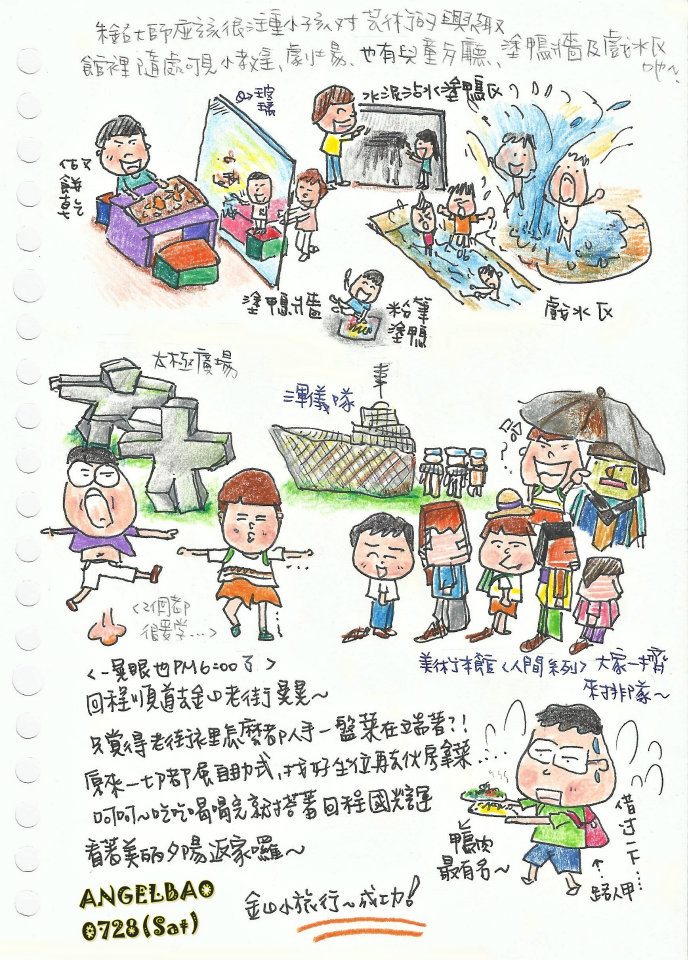 朱銘大師應該很注重小孩對藝術的興趣
館裡隨處可見小教室、劇場、也有兒童分廳、塗鴨牆及戲水區
吔~
玻璃
水泥沾水塗鴨區
塗鴨牆
粉筆
塗鴨
戲水區
太極廣場
渾儀隊
<2個都
很愛學...>
美術本館<人間系列>大家一擠
來排隊~
<一晃眼也PM6:00了>
回程順道去金山老街晃晃~
只覺得老街裡怎麼都人手一盤菜在端著?!
原來一切都是自助式,找好坐位再去伙房拿菜...
呵呵~吃吃喝喝完就搭著回程國光號
看著美麗夕陽返家囉~
鴨肉
最有名~
借過一下...
路人甲
ANGELBAO
0728(Sat)
金山小旅行~成功!